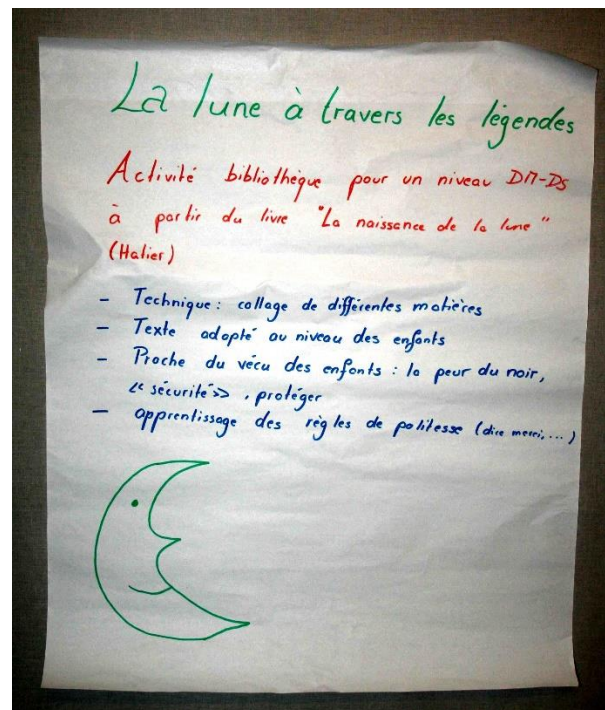 La lune à travers les légendes
Activité bibliothéque pour un niveau DM-DS
à partir du livre "La naissance de la lune"
(Halier)
- Technique: collage de différentes matières
- Texte adapté au niveau des enfants
- Proche du vécu des enfants : la peur du noir,
« sécurité», protéger
- apprentissage des règles de politesse (dire merci,...)